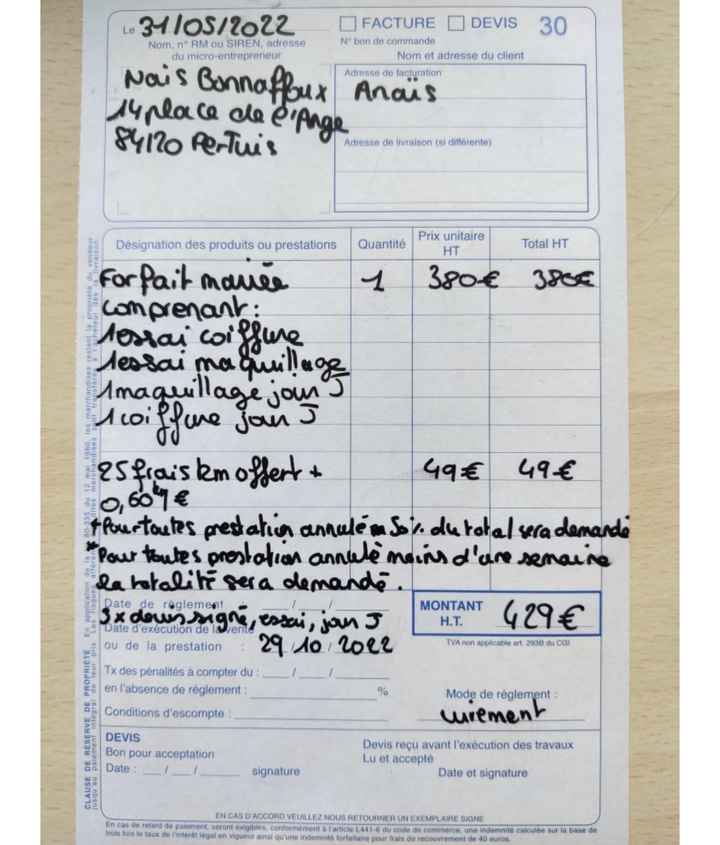 Le 31/05/2022
FACTURE DEVIS 30
Nom, n° RM ou SIREN, adresse
du micro-entrepreneur
N° bon de commande
Nom et adresse du client
Nais Bonnaffoux
14 place de l'Ange
84120 Pertuis
Adresse de facturation
Anaïs
Adresse de livraison (si différente)
Désignation des produits ou prestations Quantité Prix unitaire HT Total HT
Forfait mariée 1 380€ 380€
comprenant:
1 essai coiffure
1 essai maquillage
1 maquillage jour J
1 coiffure jour J
25 frais km offert + 49€ 49€
0,60 €
*Pour toutes prestation annulé 50% du total sera demandé
*Pour toutes prestation annulé moins d'une semaine
la totalité sera demandé.
Date de réglement : __/__/__
3x devis signé, essai, jour J
Date d'exécution de la vente
ou de la prestation : 29/10/2022
MONTANT H.T. 429€
TVA non applicable art. 293B du CGI
Tx des pénalités à compter du : __/__/__
en l'absence de réglement : %
Conditions d'escompte :
Mode de réglement :
virement
DEVIS
Bon pour acceptation
Date : __/__/__ signature
Devis reçu avant l'exécution des travaux
Lu et accepté
Date et signature
EN CAS D'ACCORD VEUILLEZ NOUS RETOURNER UN EXEMPLAIRE SIGNÉ
En cas de retard de paiement, seront exigibles, conformément à l'article L441-6 du code de commerce, une indemnité calculée sur la base de
trois fois le taux de l'intérêt légal en vigueur ainsi qu'une indemnité forfaitaire pour frais de recouvrement de 40 euros.
CLAUSE DE RESERVE DE PROPRIETE